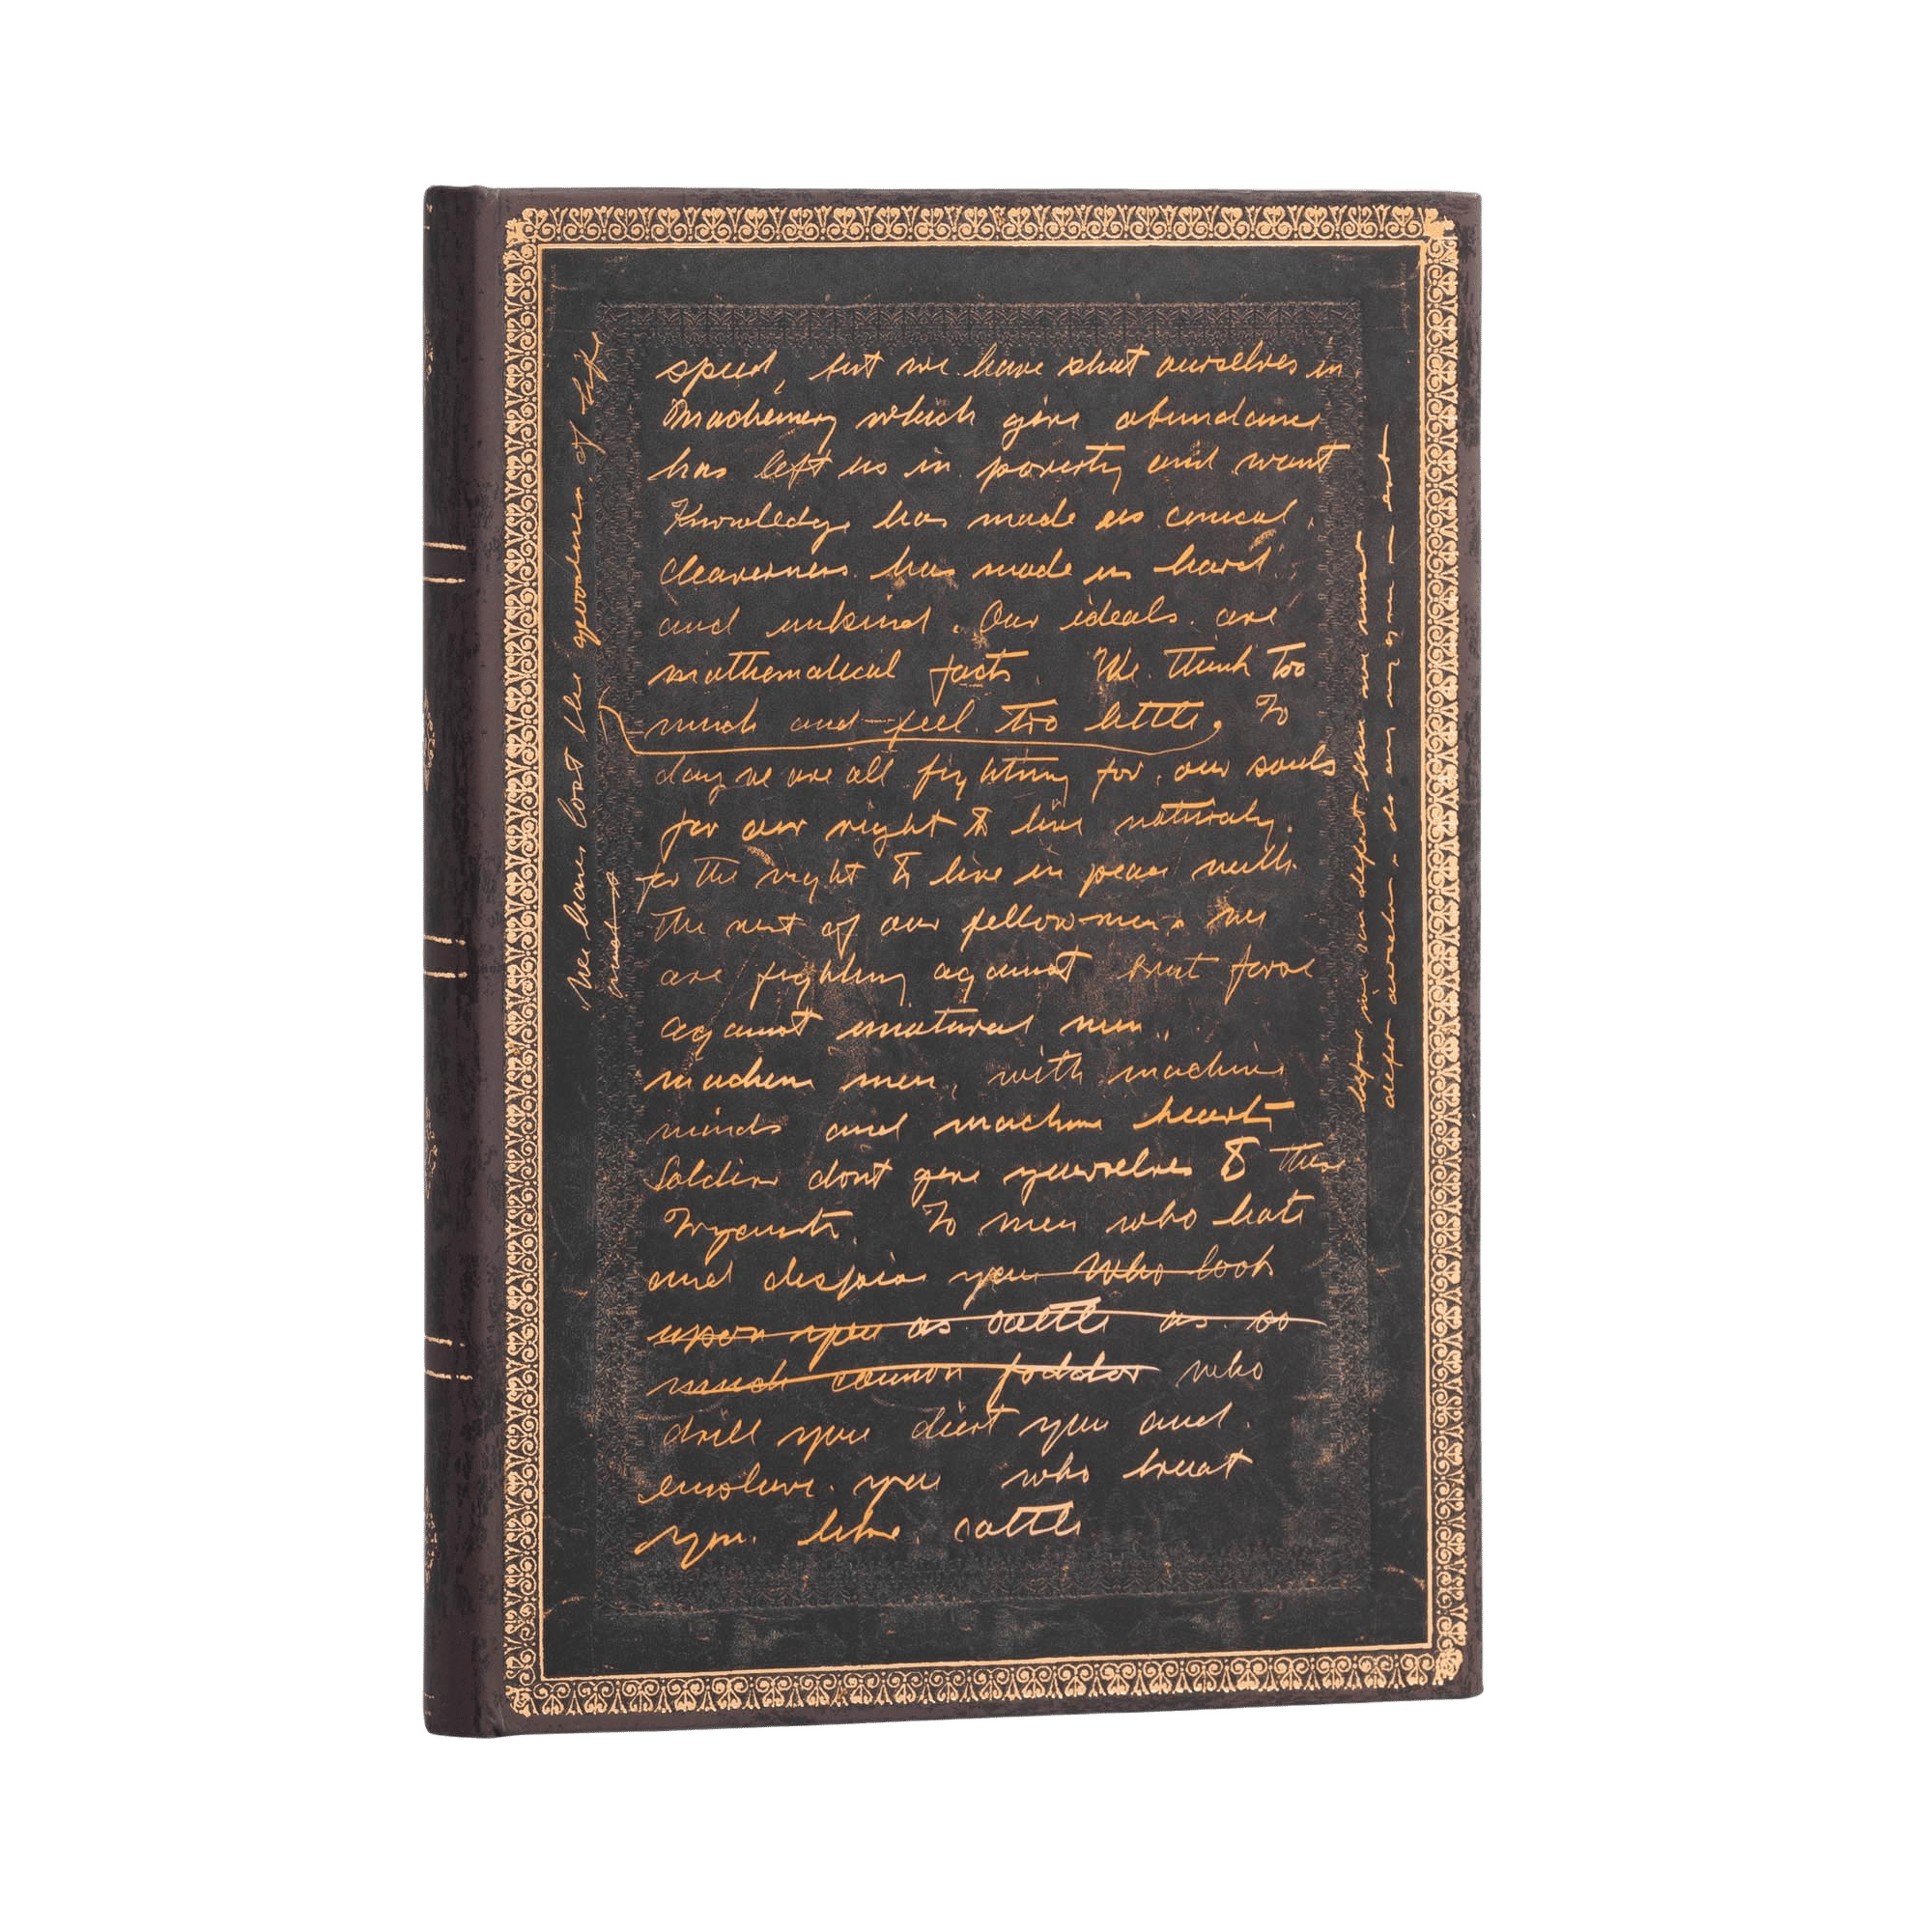 speed, but we have shut ourselves in
Machinery which give abundance
has left us in poverty and want
Knowledge has made us cinical,
cleaverness has made us hard.
and unkind. Our ideals are
mathematical facts. We think too
much and feel too little, To
day we are all fighting for our souls
for our right to live naturaly.
for the right to live in peace with
the rest of our fellow-men, we
are fighting against brut force
against unatural men,
machine men, with machine
minds and machine hearts
Soldiers dont give yourselves to these
To men who hate
and despise you who look
upon you as cattle as so
much cannon foddor who
drill you diert you and
enslave you who treat
you like cattle
We have lost the goodness of life